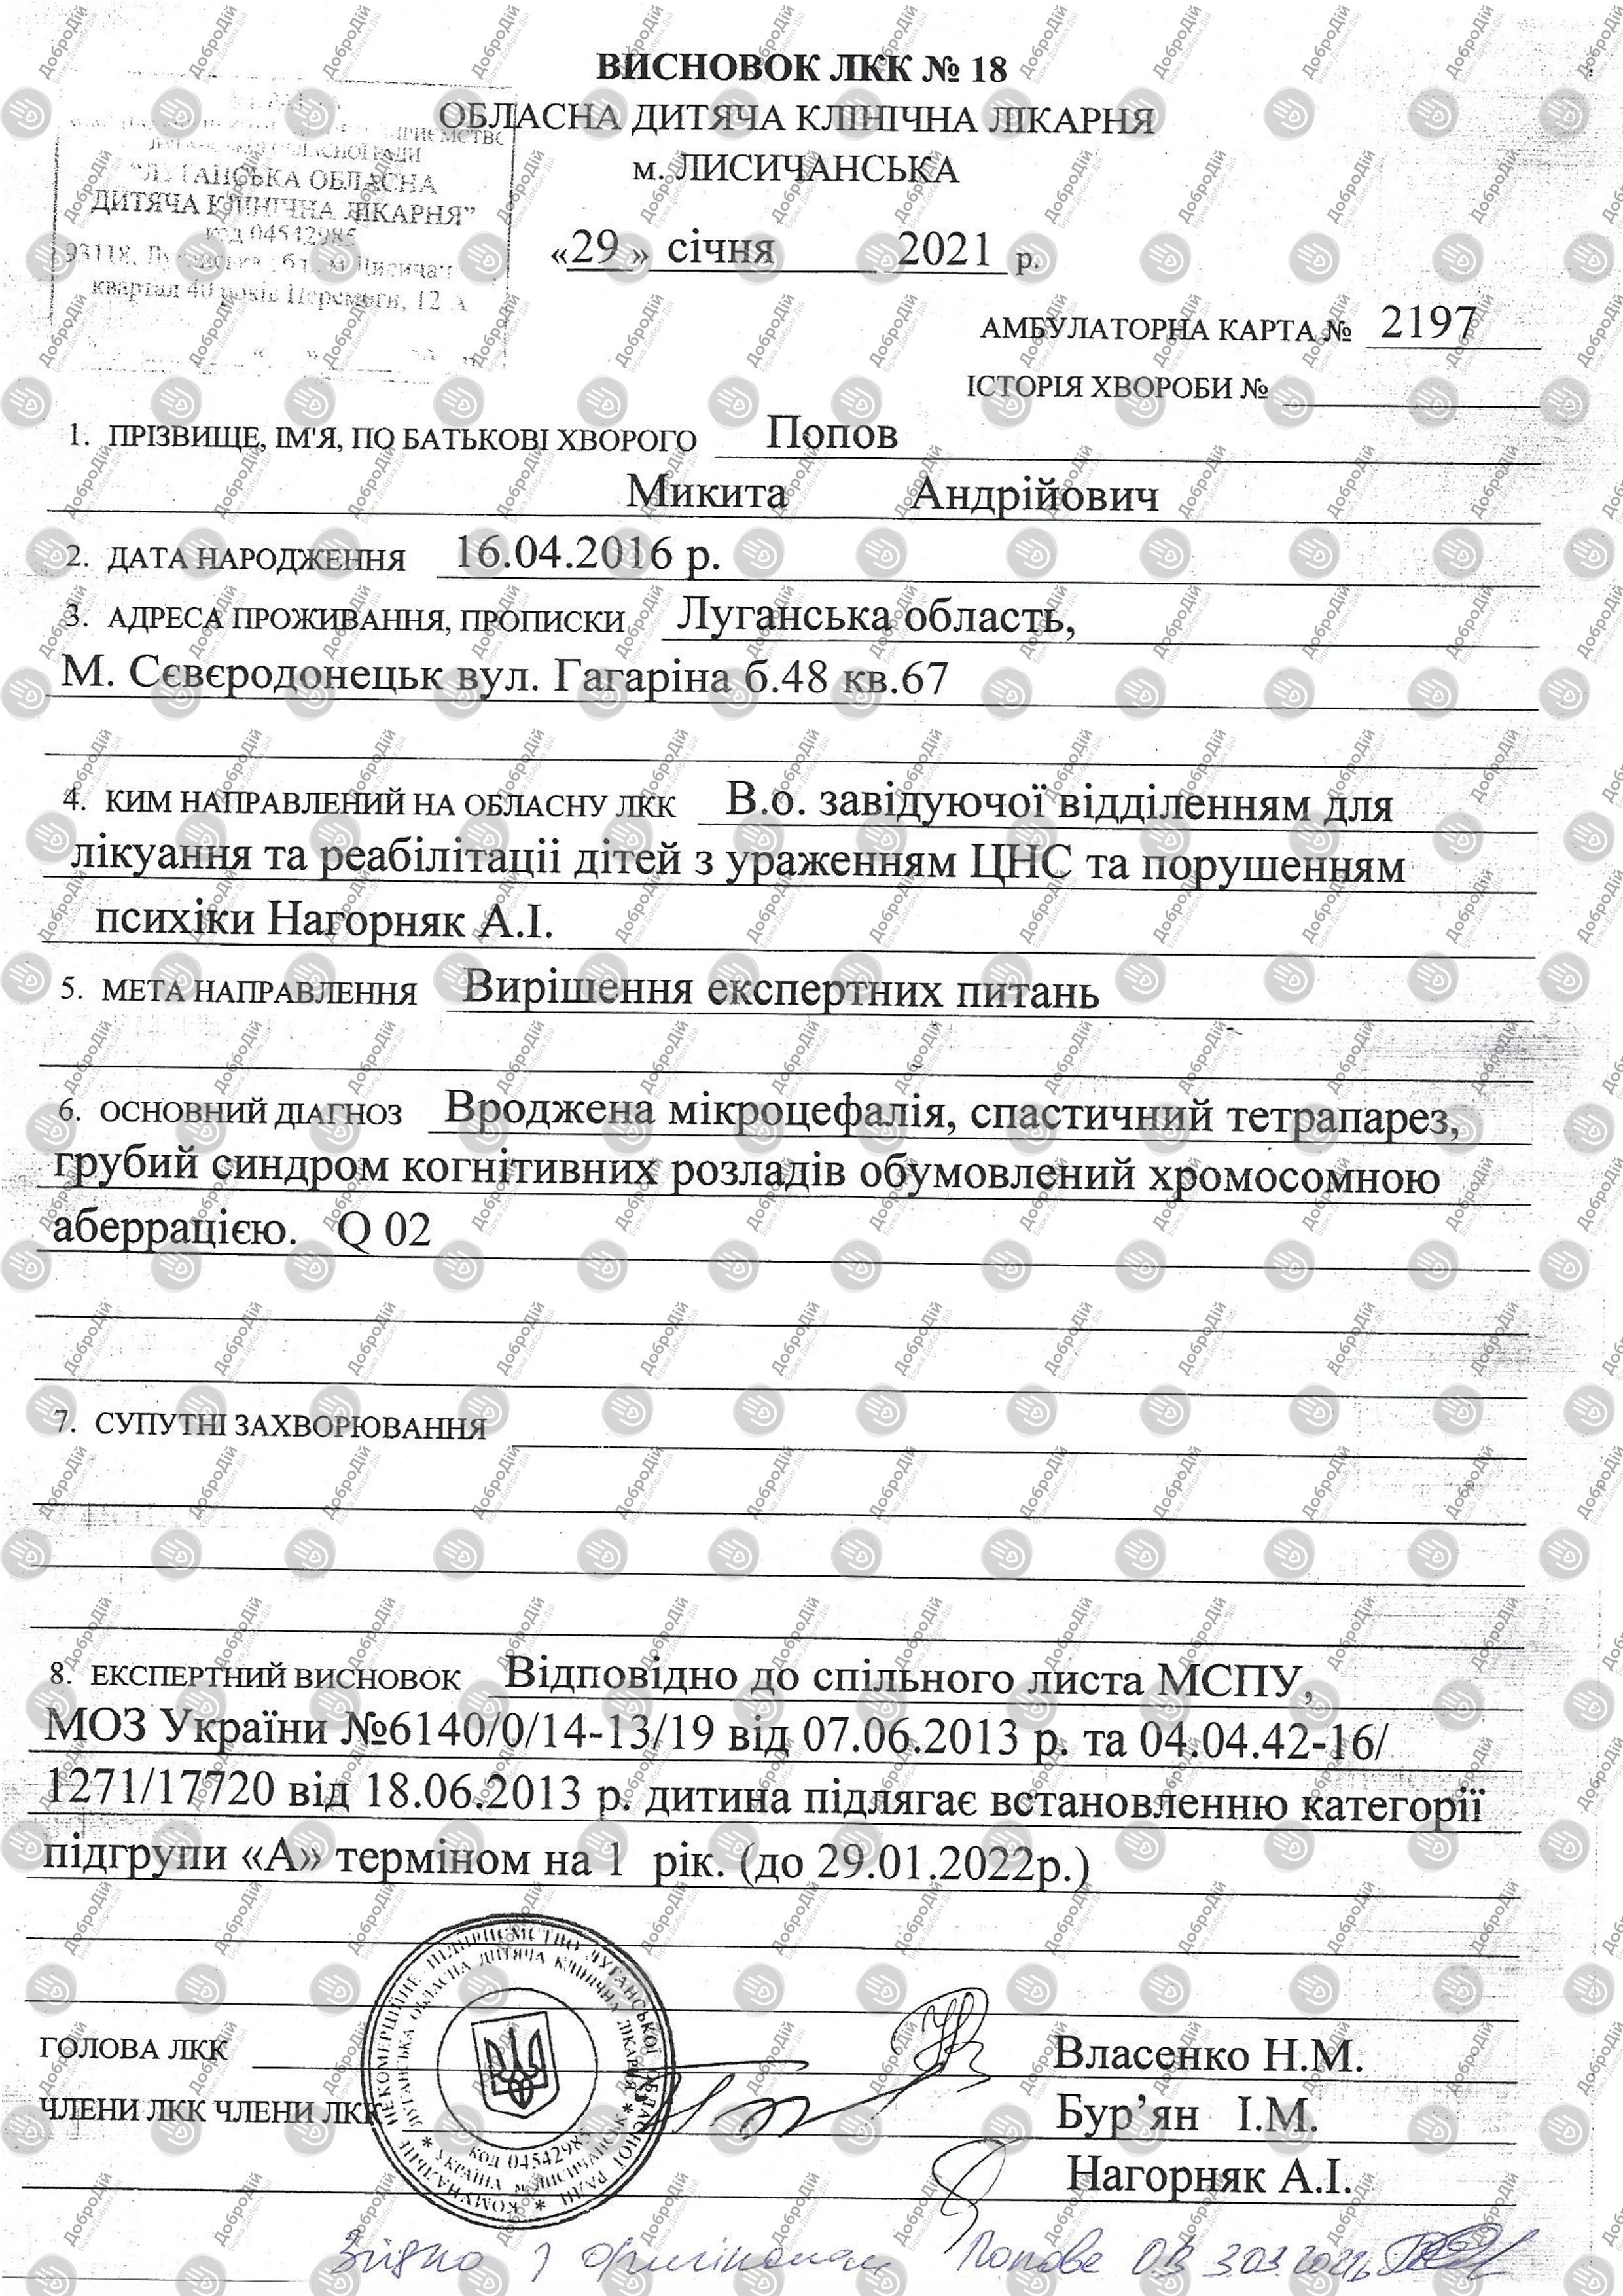 ВИСНОВОК ЛКК № 18
ОБЛАСНА ДИТЯЧА КЛІНІЧНА ЛІКАРНЯ
м. ЛИСИЧАНСЬКА
"ЛУГАНСЬКА ОБЛАСНА
ДИТЯЧА КЛІНІЧНА ЛІКАРНЯ"
код 04542985
квартал 40 років Перемоги, 12 А
«29» січня 2021 р.
АМБУЛАТОРНА КАРТА № 2197
ІСТОРІЯ ХВОРОБИ №
1. ПРІЗВИЩЕ, ІМ'Я, ПО БАТЬКОВІ ХВОРОГО Попов
Микита Андрійович
2. ДАТА НАРОДЖЕННЯ 16.04.2016 р.
3. АДРЕСА ПРОЖИВАННЯ, ПРОПИСКИ Луганська область,
М. Сєвєродонецьк вул. Гагаріна б.48 кв.67
4. КИМ НАПРАВЛЕНИЙ НА ОБЛАСНУ ЛКК В.о. завідуючої відділенням для
лікуання та реабілітаціі дітей з ураженням ЦНС та порушенням
психіки Нагорняк А.І.
5. МЕТА НАПРАВЛЕННЯ Вирішення експертних питань
6. ОСНОВНИЙ ДІАГНОЗ Вроджена мікроцефалія, спастичний тетрапарез,
грубий синдром когнітивних розладів обумовлений хромосомною
аберрацією. Q 02
7. СУПУТНІ ЗАХВОРЮВАННЯ
8. ЕКСПЕРТНИЙ ВИСНОВОК Відповідно до спільного листа МСПУ,
МОЗ України №6140/0/14-13/19 від 07.06.2013 р. та 04.04.42-16/
1271/17720 від 18.06.2013 р. дитина підлягає встановленню категорії
підгрупи «А» терміном на 1 рік. (до 29.01.2022р.)
ГОЛОВА ЛКК Власенко Н.М.
ЧЛЕНИ ЛКК ЧЛЕНИ ЛКК Бур’ян І.М.
Нагорняк А.І.
КОМУНАЛЬНЕ НЕКОМЕРЦІЙНЕ ПІДПРИЄМСТВО ЛУГАНСЬКОЇ ОБЛАСНОЇ РАДИ
ЛУГАНСЬКА ОБЛАСНА ДИТЯЧА КЛІНІЧНА ЛІКАРНЯ
УКРАЇНА м. ЛИСИЧАНСЬК
КОД 04542985
Згідно з оригіналом Попова О.В
ДоброДій
Біржа Добрих Дій